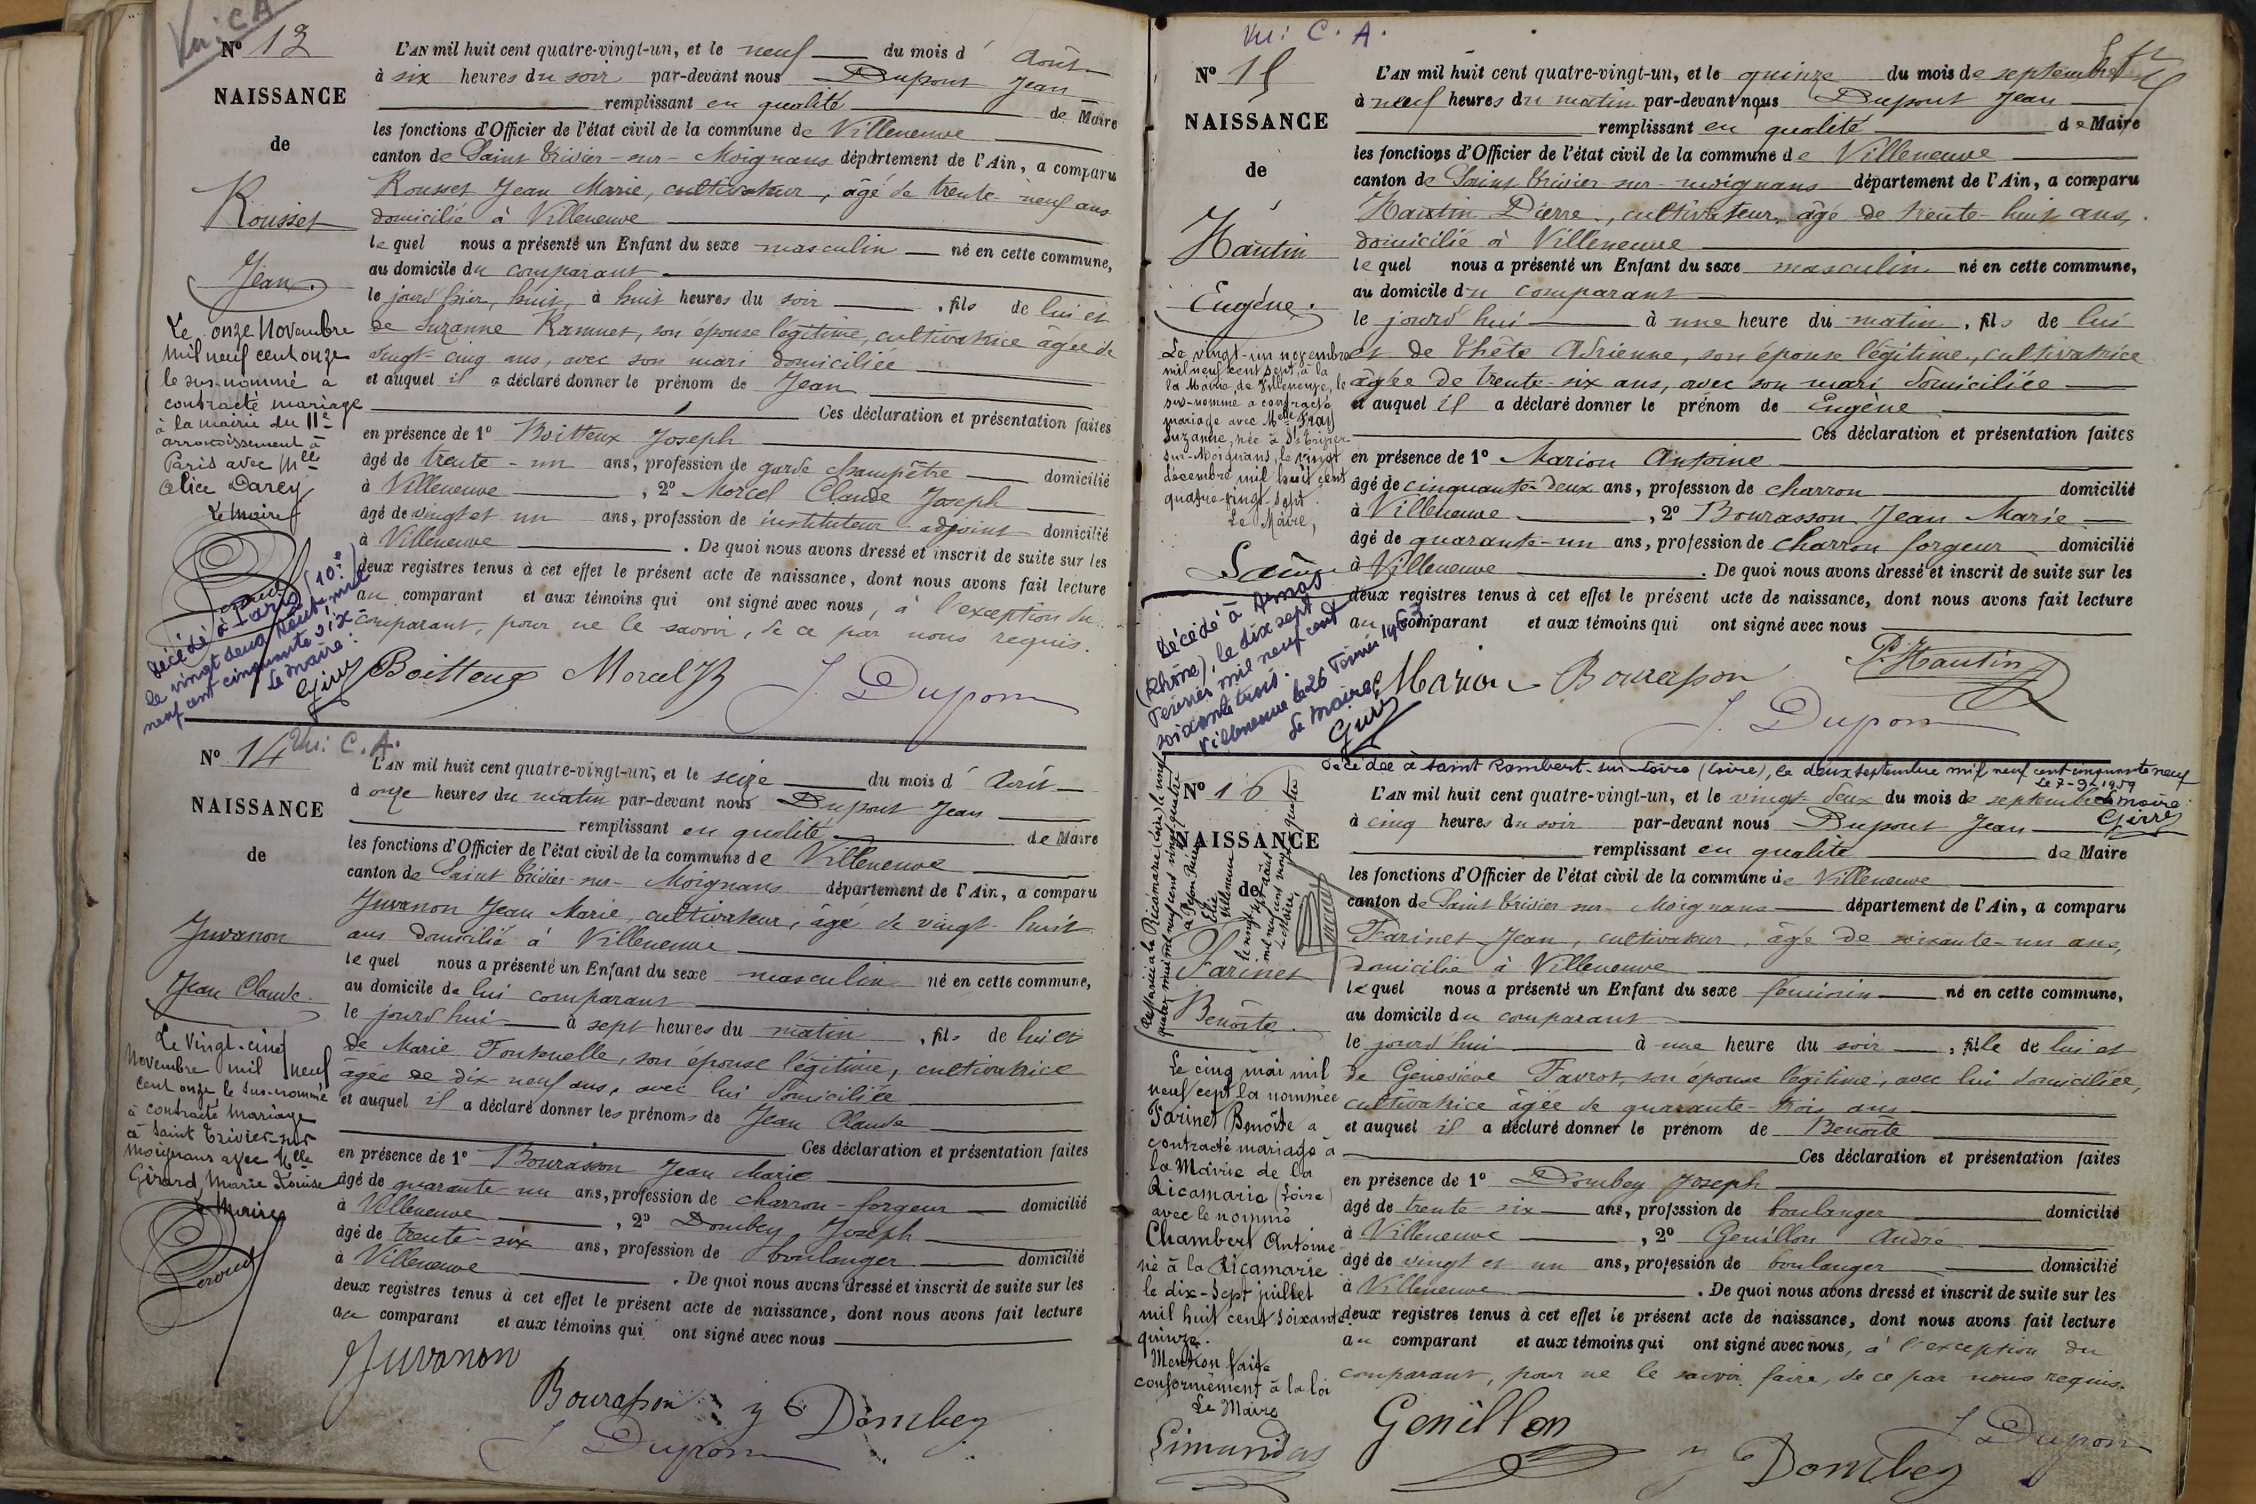 Vu: C A
Nº 13
NAISSANCE
de
Rousset
Jean.
Le onze Novembre
mil neuf cent onze
le sus-nommé a
contracté mariage
à la mairie du 11e
arrondissement à
Paris avec Mlle
Alice Darey
Le Maire
Décédé à Paris (10e)
le vingt deux Août mil
neuf cent cinquante six
Le Maire:
L'AN mil huit cent quatre-vingt-un, et le neuf du mois d' Août
à six heures du soir par-devant nous Dupont Jean
remplissant en qualité de Maire
les fonctions d'Officier de l'état civil de la commune de Villeneuve
canton de Saint Trivier-sur-Moignans département de l'Ain, a comparu
Rousset Jean Marie, cultivateur, âgé de trente-neuf ans
domicilié à Villeneuve
lequel nous a présenté un Enfant du sexe masculin né en cette commune,
au domicile du comparant
le jourd'hier, huit, à huit heures du soir, fils de lui et
de Suzanne Ramuet, son épouse légitime, cultivatrice âgée de
vingt-cinq ans, avec son mari domiciliée
et auquel il a déclaré donner le prénom de Jean
Ces déclaration et présentation faites
en présence de 1º Boitteux Joseph
âgé de trente-un ans, profession de garde champêtre domicilié
à Villeneuve, 2º Morcel Claude Joseph
âgé de vingt et un ans, profession de instituteur adjoint domicilié
à Villeneuve. De quoi nous avons dressé et inscrit de suite sur les
deux registres tenus à cet effet le présent acte de naissance, dont nous avons fait lecture
au comparant et aux témoins qui ont signé avec nous, à l'exception du
comparant, pour ne le savoir, de ce par nous requis.
Boitteux Morcel J. Dupont
Nº 14 Vu: C. A.
NAISSANCE
de
Juvanon
Jean Claude.
Le Vingt-cinq
Novembre mil neuf
cent onze le sus-nommé
a contracté mariage
à Saint Trivier-sur
Moignans avec Mlle
Girard Marie Louise
Le Maire
L'AN mil huit cent quatre-vingt-un, et le seize du mois d' Août
à onze heures du matin par-devant nous Dupont Jean
remplissant en qualité de Maire
les fonctions d'Officier de l'état civil de la commune de Villeneuve
canton de Saint Trivier-sur-Moignans département de l'Ain, a comparu
Juvanon Jean Marie, cultivateur, âgé de vingt-huit
ans domicilié à Villeneuve
lequel nous a présenté un Enfant du sexe masculin né en cette commune,
au domicile de lui comparant
le jourd'hui à sept heures du matin, fils de lui et
de Marie Fontenelle, son épouse légitime, cultivatrice
âgée de dix-neuf ans, avec lui domiciliée
et auquel il a déclaré donner les prénoms de Jean Claude
Ces déclaration et présentation faites
en présence de 1º Bourasson Jean Marie
âgé de quarante-un ans, profession de charron-forgeur domicilié
à Villeneuve, 2º Dombey Joseph
âgé de trente-six ans, profession de boulanger domicilié
à Villeneuve. De quoi nous avons dressé et inscrit de suite sur les
deux registres tenus à cet effet le présent acte de naissance, dont nous avons fait lecture
au comparant et aux témoins qui ont signé avec nous
Juvanon
Bourasson Dombey
J Dupont
Vu: C. A.
Nº 15
NAISSANCE
de
Hautin
Eugène.
Le vingt-un novembre
mil neuf cent sept, à la
la Mairie de Villeneuve, le
sus-nommé a contracté
mariage avec Melle Fray
Suzanne, née à St Trivier
sur-Moignans, le vingt
décembre mil huit cent
quatre-vingt-sept.
Le Maire,
Décédé à Arnas
(Rhône), le dix sept
Février mil neuf cent
soixante trois.
Villeneuve le 26 Février 1963
Le Maire
L'AN mil huit cent quatre-vingt-un, et le quinze du mois de septembre
à neuf heures du matin par-devant nous Dupont Jean
remplissant en qualité de Maire
les fonctions d'Officier de l'état civil de la commune de Villeneuve
canton de Saint Trivier-sur-moignans département de l'Ain, a comparu
Hautin Pierre, cultivateur, âgé de trente-huit ans,
domicilié à Villeneuve
lequel nous a présenté un Enfant du sexe masculin né en cette commune,
au domicile du comparant
le jourd'hui à une heure du matin, fils de lui
et de Thête Adrienne, son épouse légitime, cultivatrice
âgée de trente-six ans, avec son mari domiciliée
et auquel il a déclaré donner le prénom de Eugène
Ces déclaration et présentation faites
en présence de 1º Marion Antoine
âgé de cinquante-deux ans, profession de charron domicilié
à Villeneuve, 2º Bourasson Jean Marie
âgé de quarante-un ans, profession de charron forgeur domicilié
à Villeneuve. De quoi nous avons dressé et inscrit de suite sur les
deux registres tenus à cet effet le présent acte de naissance, dont nous avons fait lecture
au comparant et aux témoins qui ont signé avec nous
P. Hautin
Marion Bourasson
J. Dupont
Décédée à Saint Rambert-sur-Loire (Loire), le deux septembre mil neuf cent cinquante neuf
Le Maire:
Nº 16
NAISSANCE
de
Farinet
Benoite.
Le cinq mai mil
neuf cent la nommée
Farinet Benoîte a
contracté mariage à
la Mairie de la
Ricamarie (Loire)
avec le nommé
Chambert Antoine
né à la Ricamarie
le dix-sept juillet
mil huit cent soixante
quinze.
Mention faite
conformément à la loi
Le Maire
Limandas
L'AN mil huit cent quatre-vingt-un, et le vingt-deux du mois de septembre
à cinq heures du soir par-devant nous Dupont Jean
remplissant en qualité de Maire
les fonctions d'Officier de l'état civil de la commune de Villeneuve
canton de Saint Trivier-sur-Moignans département de l'Ain, a comparu
Farinet Jean, cultivateur, âgé de soixante-un ans,
domicilié à Villeneuve
lequel nous a présenté un Enfant du sexe féminin né en cette commune,
au domicile du comparant
le jourd'hui à une heure du soir, fille de lui et
de Geneviève Favrot, son épouse légitime, avec lui domiciliée,
cultivatrice âgée de quarante-trois ans
et auquel il a déclaré donner le prénom de Benoite
Ces déclaration et présentation faites
en présence de 1º Dombey Joseph
âgé de trente-six ans, profession de boulanger domicilié
à Villeneuve, 2º Genillon André
âgé de vingt et un ans, profession de boulanger domicilié
à Villeneuve. De quoi nous avons dressé et inscrit de suite sur les
deux registres tenus à cet effet le présent acte de naissance, dont nous avons fait lecture
au comparant et aux témoins qui ont signé avec nous, à l'exception du
comparant, pour ne le savoir faire, de ce par nous requis.
Genillon J Dupont
Dombey